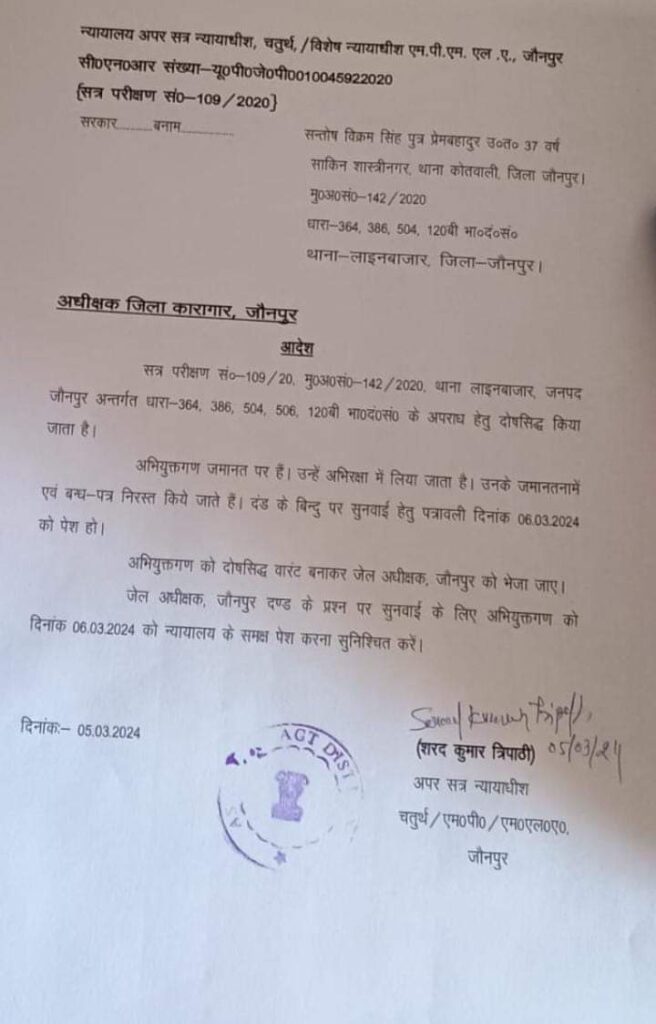 न्यायालय अपर सत्र न्यायाधीश, चतुर्थ,/विशेष न्यायाधीश एम.पी.एम. एल .ए., जौनपुर
सी0एन0आर संख्या–यू0पी0जे0पी0010045922020
{सत्र परीक्षण सं0–109/2020}
सरकार............बनाम.................
सन्तोष विक्रम सिंह पुत्र प्रेमबहादुर उ०त० 37 वर्ष
साकिन शास्त्रीनगर, थाना कोतवाली, जिला जौनपुर।
मु0अ0सं0–142/2020
धारा–364, 386, 504, 120बी भा०दं०सं०
थाना–लाइनबाजार, जिला–जौनपुर।
अधीक्षक जिला कारागार, जौनपुर
आदेश
सत्र परीक्षण सं०–109/20, मु0अ0सं0–142/2020, थाना लाइनबाजार, जनपद
जौनपुर अन्तर्गत धारा–364, 386, 504, 506, 120बी भा0दं0सं0 के अपराध हेतु दोषसिद्ध किया
जाता है।
अभियुक्तगण जमानत पर है। उन्हें अभिरक्षा में लिया जाता है। उनके जमानतनामें
एवं बन्ध–पत्र निरस्त किये जाते हैं। दंड के बिन्दु पर सुनवाई हेतु पत्रावली दिनांक 06.03.2024
को पेश हो।
अभियुक्तगण को दोषसिद्ध वारंट बनाकर जेल अधीक्षक, जौनपुर को भेजा जाए।
जेल अधीक्षक, जौनपुर दण्ड के प्रश्न पर सुनवाई के लिए अभियुक्तगण को
दिनांक 06.03.2024 को न्यायालय के समक्ष पेश करना सुनिश्चित करें।
दिनांक:– 05.03.2024
(शरद कुमार त्रिपाठी) 05/03/24
अपर सत्र न्यायाधीश
चतुर्थ/एम0पी0/एम0एल0ए0,
जौनपुर